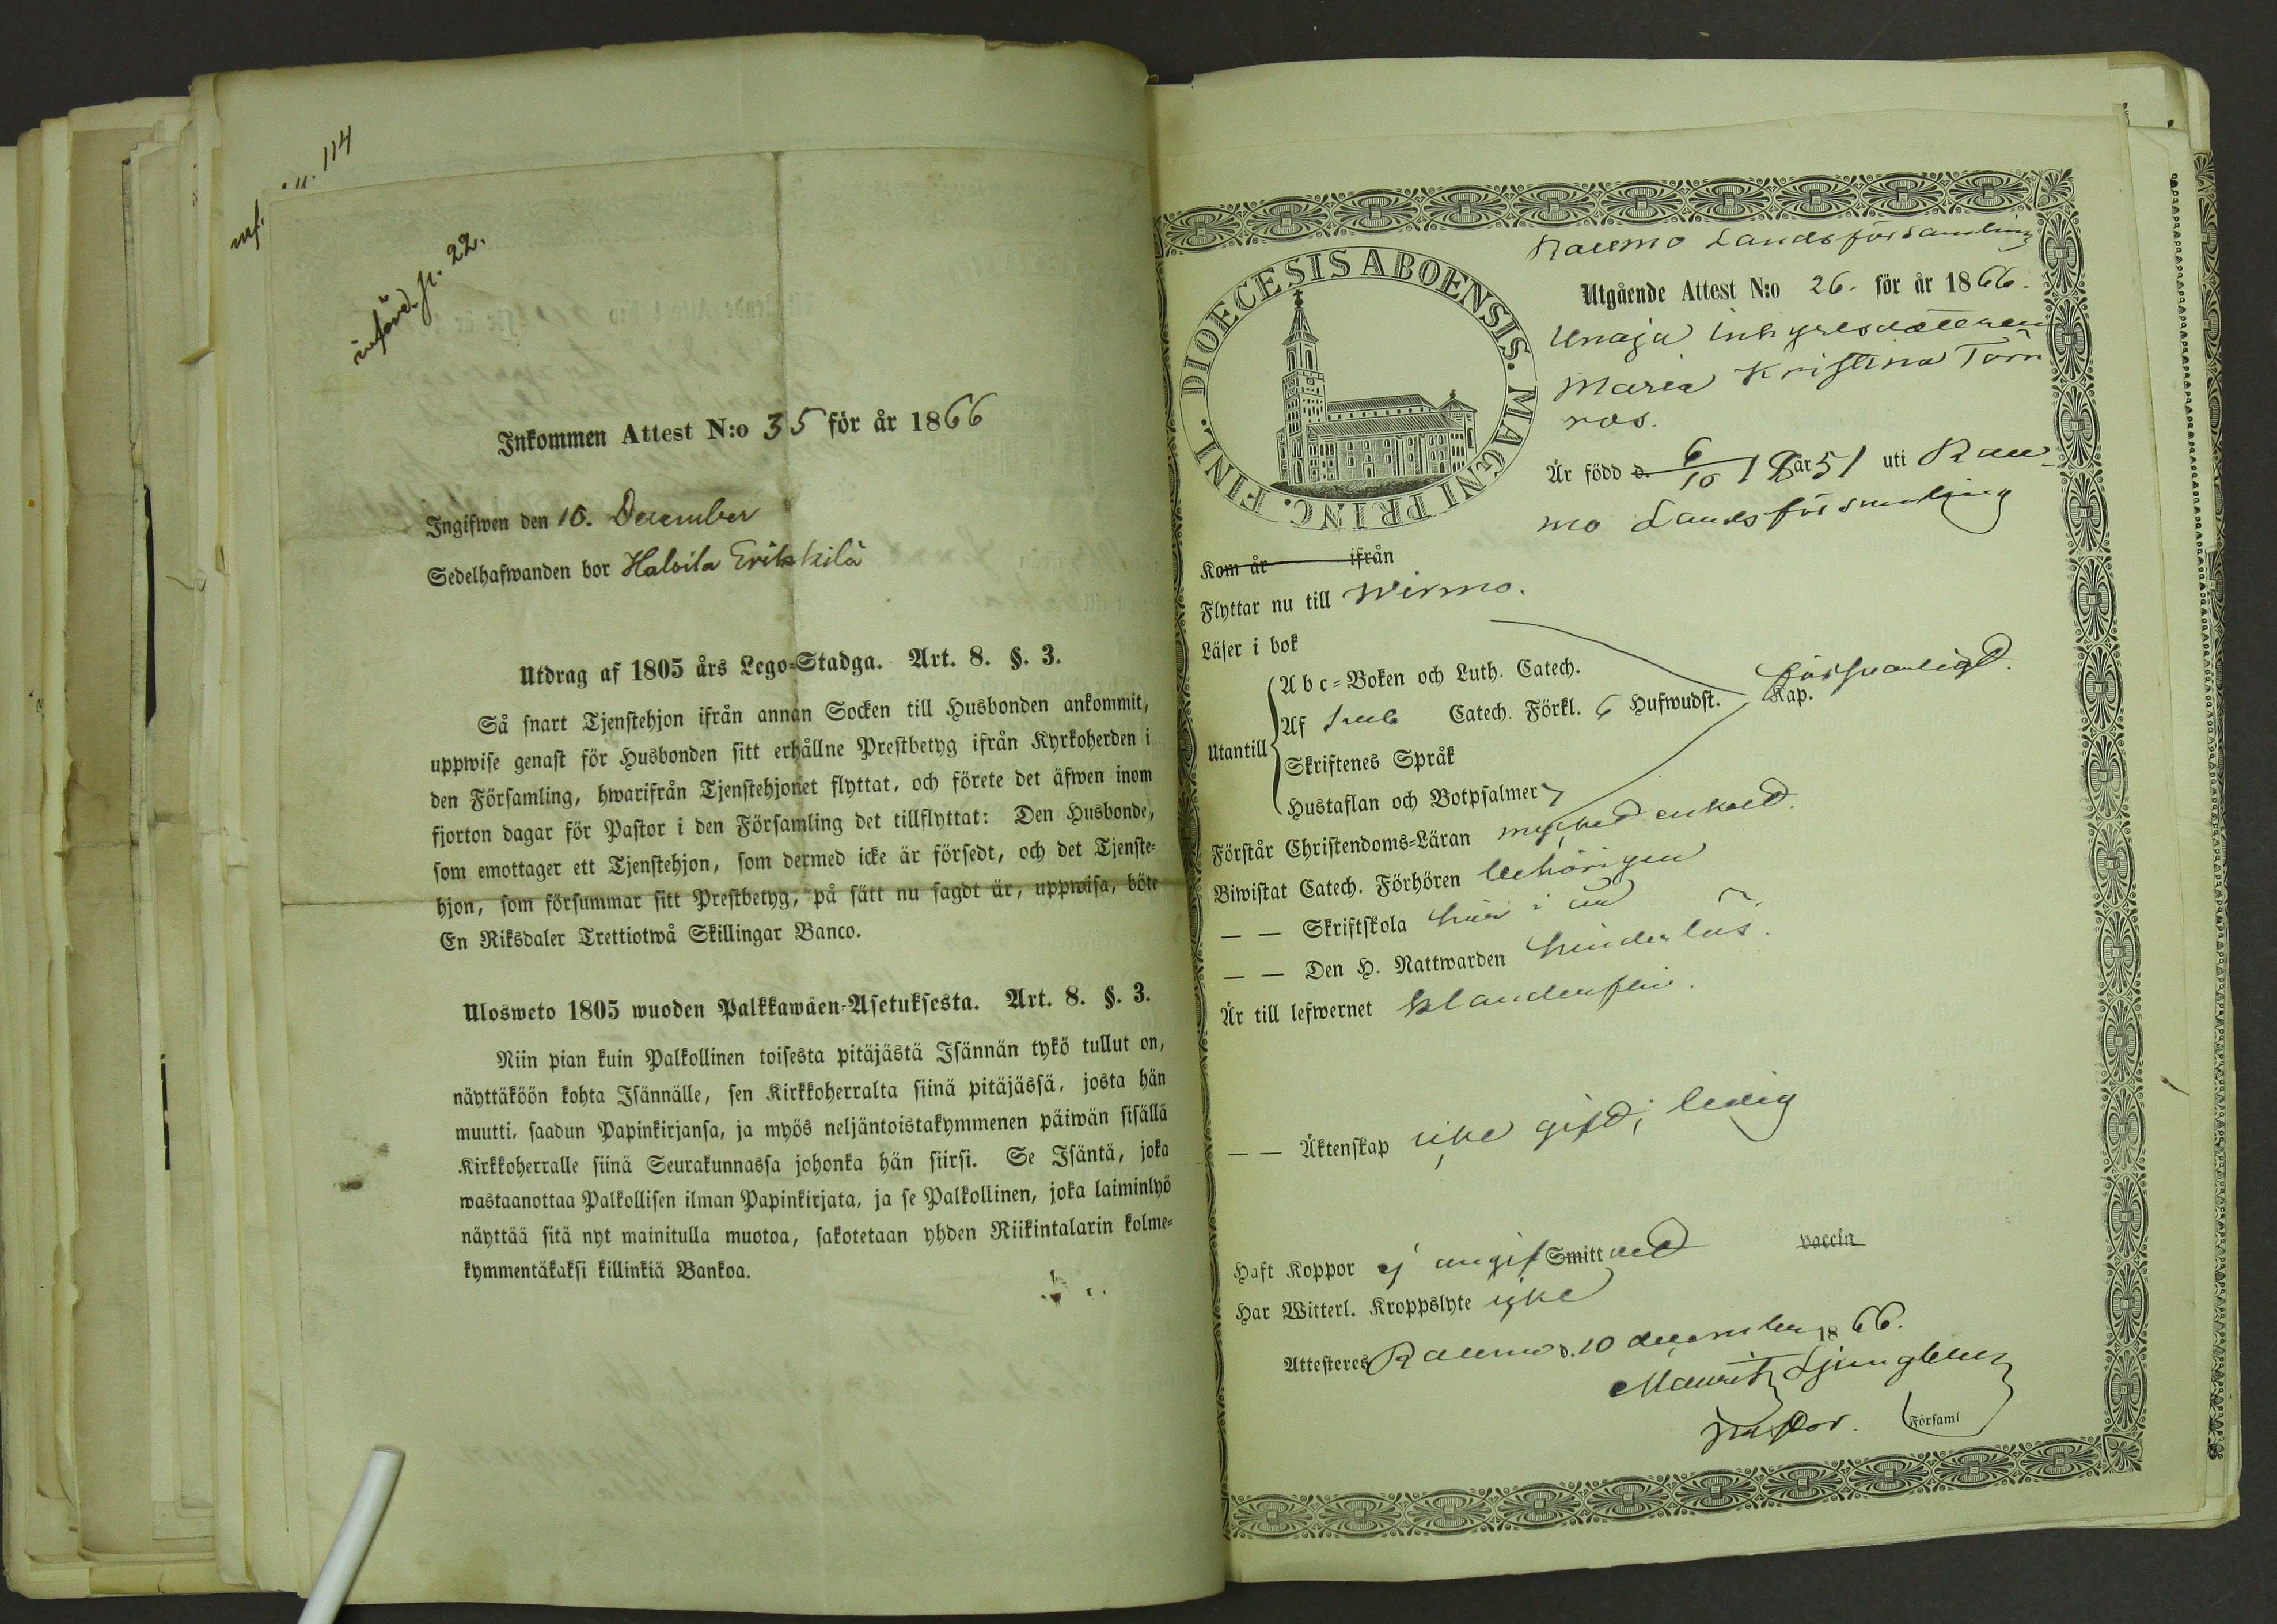 införd. p. 22.
Inkommen Attest N:o 35 för år 1866
Ingifwen den 16. December
Sedelhafwanden bor Haloila Erikkilä
Utdrag af 1805 års Lego-Stadga. Art. 8. §. 3.
Så snart Tjenstehjon ifrån annan Socken till Husbonden ankommit,
uppwise genast för Husbonden sitt erhållne Prestbetyg ifrån Kyrkoherden i
den Församling, hwarifrån Tjenstehjonet flyttat, och förete det äfwen inom
fjorton dagar för Pastor i den Församling det tillflyttat: Den Husbonde,
som emottager ett Tjenstehjon, som dermed icke är försedt, och det Tjenste-
hjon, som försummar sitt Prestbetyg, på sätt nu sagdt är, uppwisa, böte
En Riksdaler Trettiotwå Skillingar Banco.
Ulosweto 1805 wuoden Palkkawäen-Asetuksesta. Art. 8. §. 3.
Niin pian kuin Palkollinen toisesta pitäjästä Isännän tykö tullut on,
näyttäköön kohta Isännälle, sen Kirkkoherralta siinä pitäjässä, josta hän
muutti, saadun Papinkirjansa, ja myös neljäntoistakymmenen päiwän sisällä
Kirkkoherralle siinä Seurakunnassa johonka hän siirsi. Se Isäntä, joka
wastaanottaa Palkollisen ilman Papinkirjata, ja se Palkollinen, joka laiminlyö
näyttää sitä nyt mainitulla muotoa, sakotetaan yhden Riikintalarin kolme-
kymmentäkaksi killinkiä Bankoa.
114
DIOECESIS ABOENSIS. MAGNI PRINC. FINL.
Raumo Landsförsamling
Utgående Attest N:o 26. för år 1866.
Unaja inhysesdotteren
Maria Kristina Törn
ros.
Är född d. 6/10 18år51 uti Rau-
mo Landsförsamling
Kom år ifrån
Flyttar nu till Wirmo.
Läser i bok
försvarligt.
Abc-Boken och Luth. Catech.
Af Catech. Förkl. 6 Hufwudst. Kap.
Utantill
Skriftenes Språk
Hustaflan och Botpsalmer
Förstår Christendoms-Läran mycket enkelt.
Biwistat Catech. Förhören behörigen
— — Skriftskola här i
— — Den H. Nattwarden hinderlös.
Är till lefwernet klanderfri.
— — Äktenskap icke gift; ledig
Haft Koppor ej angifvet Smitt vaccin
Har Witterl. Kroppslyte icke
Attesteres Raumo d. 10 december 1866.
Mauritz Ljungberg
pastor. Församl